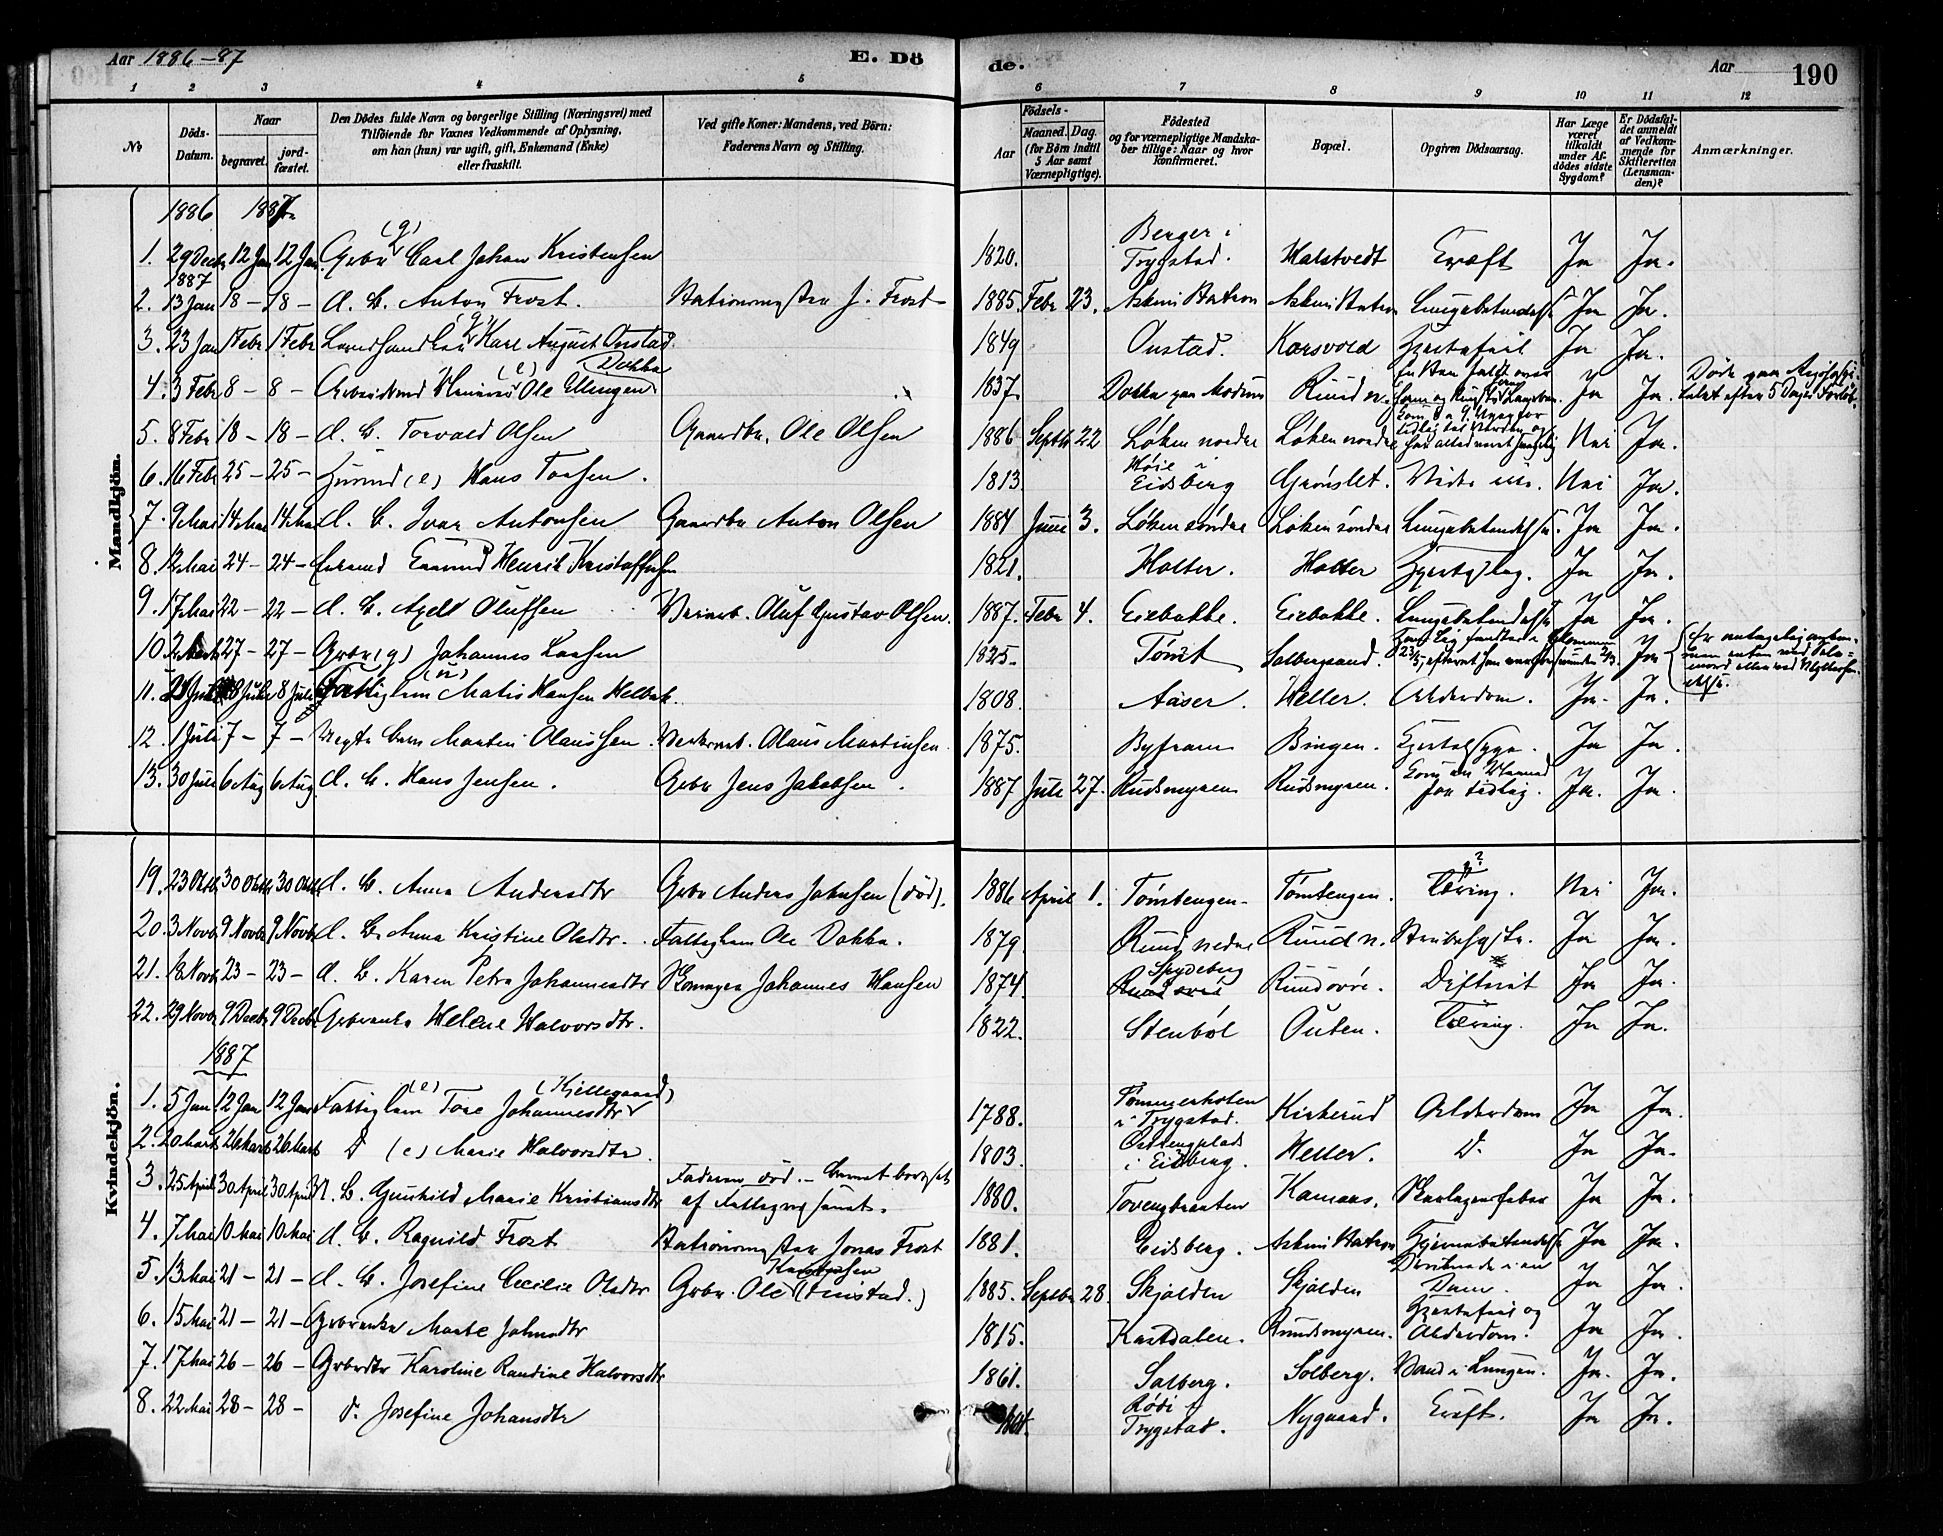 Aar 1886-87 E. Dö de. Aar 190
1 2 3 4 5 6 7 8 9 10 11 12
No
Döds-Datum.
Naar
begravet.
jord-fæstet.
Den Dödes fulde Navn og borgerlige Stilling (Næringsvei) med
Tilföiende for Voxnes Vedkommende af Oplysning,
om han (hun) var ugift, gift, Enkemand (Enke)
eller fraskilt.
Ved gifte Koner: Mandens, ved Börn:
Faderens Navn og Stilling.
Födsels-
Aar
Maaned. Dag.
(for Börn indtil
5 Aar samt
Værnepligtige).
Födested
og for værnepligtige Mandska-
ber tillige: Naar og hvor
konfirmeret.
Bopæl.
Opgiven Dödsaarsag.
Har Læge
været
tilkaldt
under Af-
dödes sidste
Sygdom?
Er Dödsfal-
det anmeldt
af Vedkom-
mende for
Skifteretten
(Lensman-
den)?
Anmærkninger.
Mandkjön.
1886 1887
1. 29 Decbr 12 Jan 12 Jan Grbr (g) Carl Johan Kristensen 1820. Berger i Trygstad. Halstvedt Kræft Ja Ja.
1887
2. 13 Jan 18 - 18 - d. B. Anton Frost. Stationsmester J. Frost 1885 Febr 23. Askim Station Askim Station Lungebetændelse Ja Ja.
3. 23 Jan 1 Febr 1 Febr Landhandler (g) Karl August Onstad. 1849 Onstad. Korsvold Hjertefeil Ja Ja.
4. 3 Febr 8 - 8 - (e) Ole Ellingsen Dokka 1837. Dokka paa Modum Ruud n. Ja Ja. Døde paa efter 5 Dages Forløb.
5. 8 Febr 18 - 18 - d. B. Torvald Olsen Gaardbr. Ole Olsen 1886 Septbr 22 Løken nordre Løken nordre Nei Ja.
6. 16 Febr 25 - 25 - Husmd (e) Hans Toresen. 1813 Høie i Eidsberg Grønslet. Nei Ja.
7. 9 Mai 14 Mai 14 Mai d. B. Ivar Antonsen Gaardbr Anton Olsen 1884 Juni 3. Løken søndre Løken søndre Lungebetændelse. Ja Ja.
8. 12 Mai 24 - 24 - Enkemd Henrik Kristoffersen 1821. Holter. Holter Hjerteslag. Ja Ja.
9. 17 Mai 22 - 22 - d. B. Axel Olufsen Oluf Gustav Olsen. 1887. Febr 4. Eiebakke. Eiebakke. Lungebetændelse Ja Ja.
10. 27 - 27 - Grbr (g) Johannes Larsen 1825. Tømt Solbergsand. Hans Lig fundtes i Glommen Ja
11. 8 Juli 8 Juli Fattiglem (u) Matis Hansen Helbæk. 1808. Aaser. Heller. Alderdom. Ja. Ja.
12. 1 Juli 7 - 7 - Martin Olaussen. Olaus Martinsen. 1875. Byfram Bingen. Hjertesyge. Ja Ja.
13. 30 Juli 6 Aug 6 Aug. d. B. Hans Jensen. Grbr Jens Jakobsen. 1887 Juli 27. Rudsmyren Rudsmyren. Kom en Maaned for tidlig. Ja. Ja.
Kvindekjön.
19. 23 Oktb 30 Oktb 30 Oktb d. B. Anna Andersdtr Grbr Anders Johnsen (død). 1886 April 1. Tømtengen. Tømtengen. Tæring. ? Nei Ja.
20. 3 Novb 9 Novb 9 Novb d. B. Anna Kristine Olsdtr. Fattiglem Ole Dokka. 1879. Ruud nedre Ruud n. Strubehoste. Ja Ja.
21. 18 Novb 23 - 23 - d. B. Karen Petra Johannesdtr Skomager Johannes Hansen 1874. Spydeberg Ruud øvre Ruud øvre. Difterit Ja Ja.
22. 29 Novb 9 Decbr 9 Decbr Grbrenke Helene Halvorsdtr. 1822. Stenbøl Outen. Tæring. Ja Ja.
1887
1. 5 Jan 12 Jan 12 Jan Fattiglem (e) Tore Johannesdtr (Kjellegaard) 1788. Tømmerholen i Trygstad. Kirkerud Alderdom Ja Ja.
2. 20 Mart 26 Mart 26 Mart D (e) Marie Halvorsdtr. 1803. i Eidsberg. Heller. D. Ja Ja.
3. 25 April 30 April 30 April d. B. Gunhild Marie Kristiansdtr Faderen død. - Barnet bortsat af Fattigvæsenet. 1880. Tovengbraaten Kamaas. Skarlagensfeber Ja Ja.
4. 7 Mai 10 Mai 10 Mai d. B. Ragnild Frost Stationsmester Jonas Frost 1881. Eidsberg. Askim Station Hjernebetændelse Ja Ja.
5. 13 Mai 21 - 21 - d. B. Josefine Cecilie Olsdtr Grbr. Ole Karelsen (Finstad.) 1885. Septbr 28. Skjolden Skjolden Druknede i en Dam. Ja Ja.
6. 15 Mai 21 - 21 - Grbrenke Marte Johnsdtr 1815. Kastdalen. Ruudsmyren. Hjertefeil og Alderdom. Ja Ja.
7. 17 Mai 26 - 26 - Grbrdtr Karoline Randine Halvorsdtr 1861. Solberg. Solberg. Vand i Lungen. Ja. Ja.
8. 22 Mai 28 - 28 - d. Josefine Johansdtr Rødi i Trygstad. Nygaard. Kræft. Ja Ja.